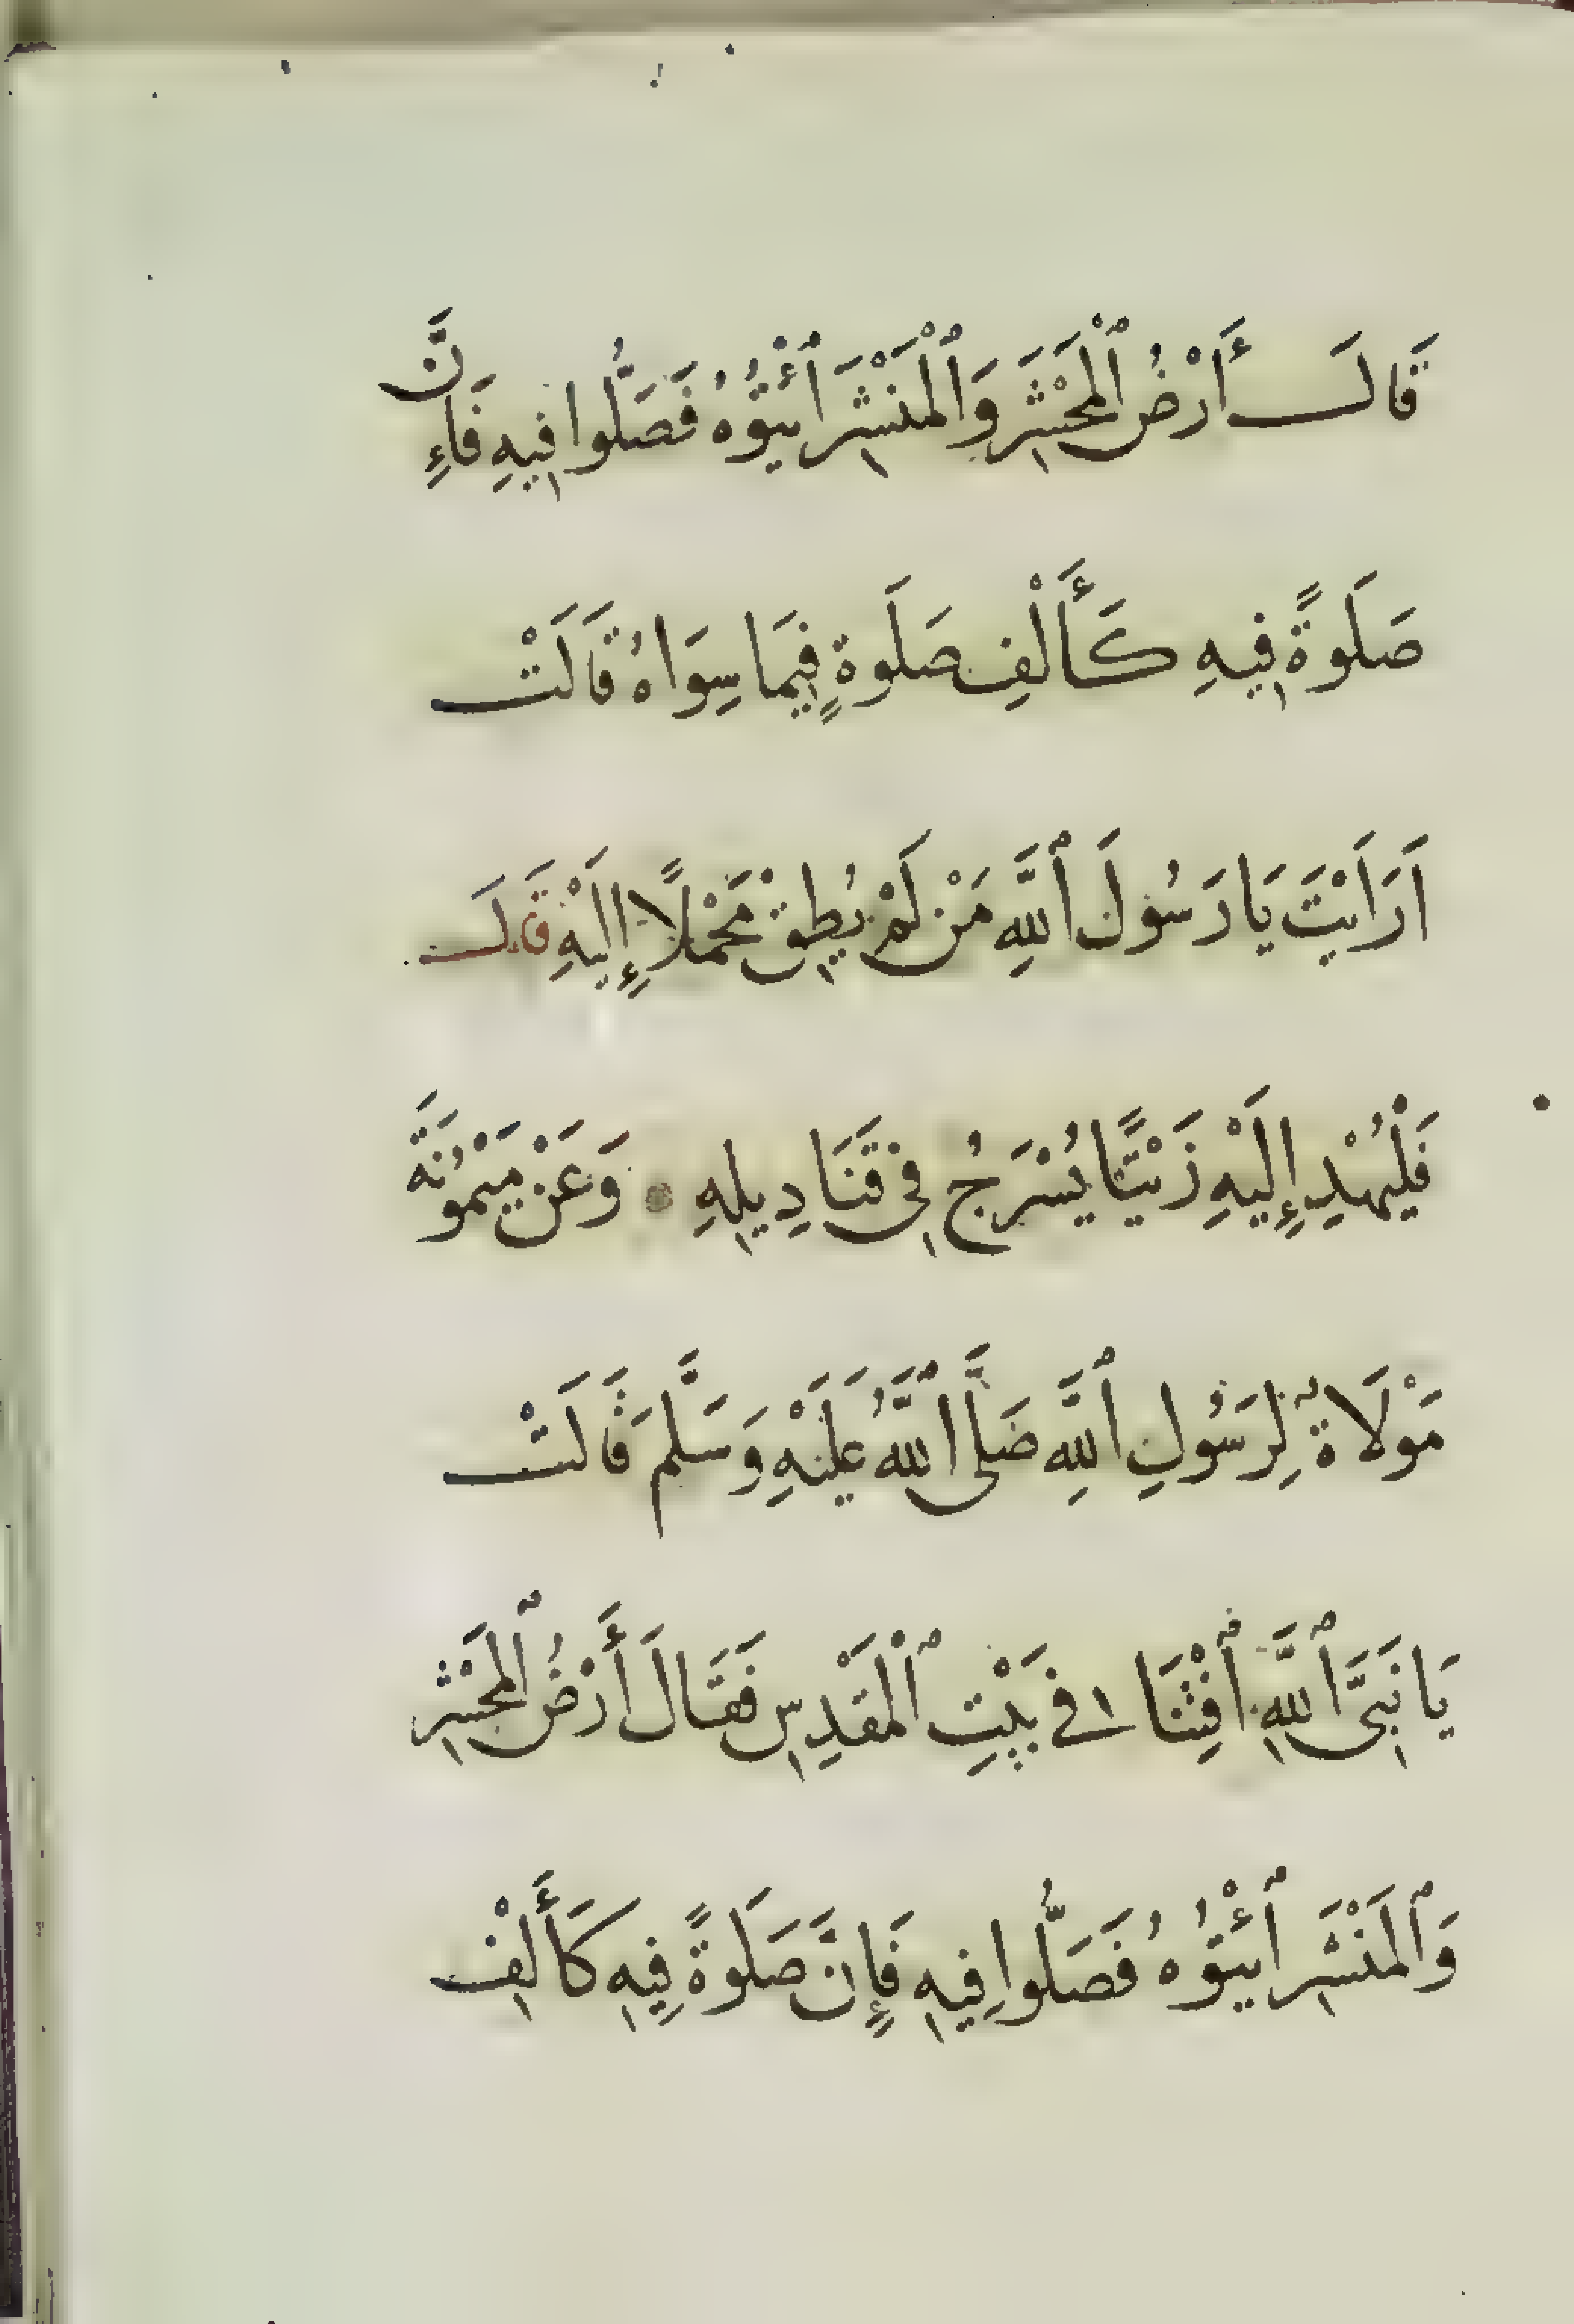 قَالَ أَرْضُ ٱلْمَحْشَرِ وَٱلْمَنْشَرِ ٱئْتُوهُ فَصَلُّوا فِيهِ فَإِنَّ
صَلَوةً فِيهِ كَأَلْفِ صَلَوةٍ فِيمَا سِوَاهُ قَالَتْ
اَرَاَيْتَ يَا رَسُولَ ٱللَّهِ مَنْ لَمْ يُطِقْ مَحْمَلًا إِلَيْهِ قَالَ
فَلْيُهْدِ إِلَيْهِ زَيْتًا يُسْرَجُ فِي قَنَادِيلِهِ وَعَنْ مَيْمُونَةَ
مَوْلَاةِ لِرَسُولِ ٱللَّهِ صَلَّى ٱللَّهُ عَلَيْهِ وَسَلَّمَ قَالَتْ
يَا نَبِيَّ ٱللَّهِ ٱفْتِنَا فِي بَيْتِ ٱلْمَقْدِسِ فَقَالَ أَرْضُ ٱلْمَحْشَرِ
وَٱلْمَنْشَرِ ٱئْتُوهُ فَصَلُّوا فِيهِ فَإِنَّ صَلَوةً فِيهِ كَأَلْفِ